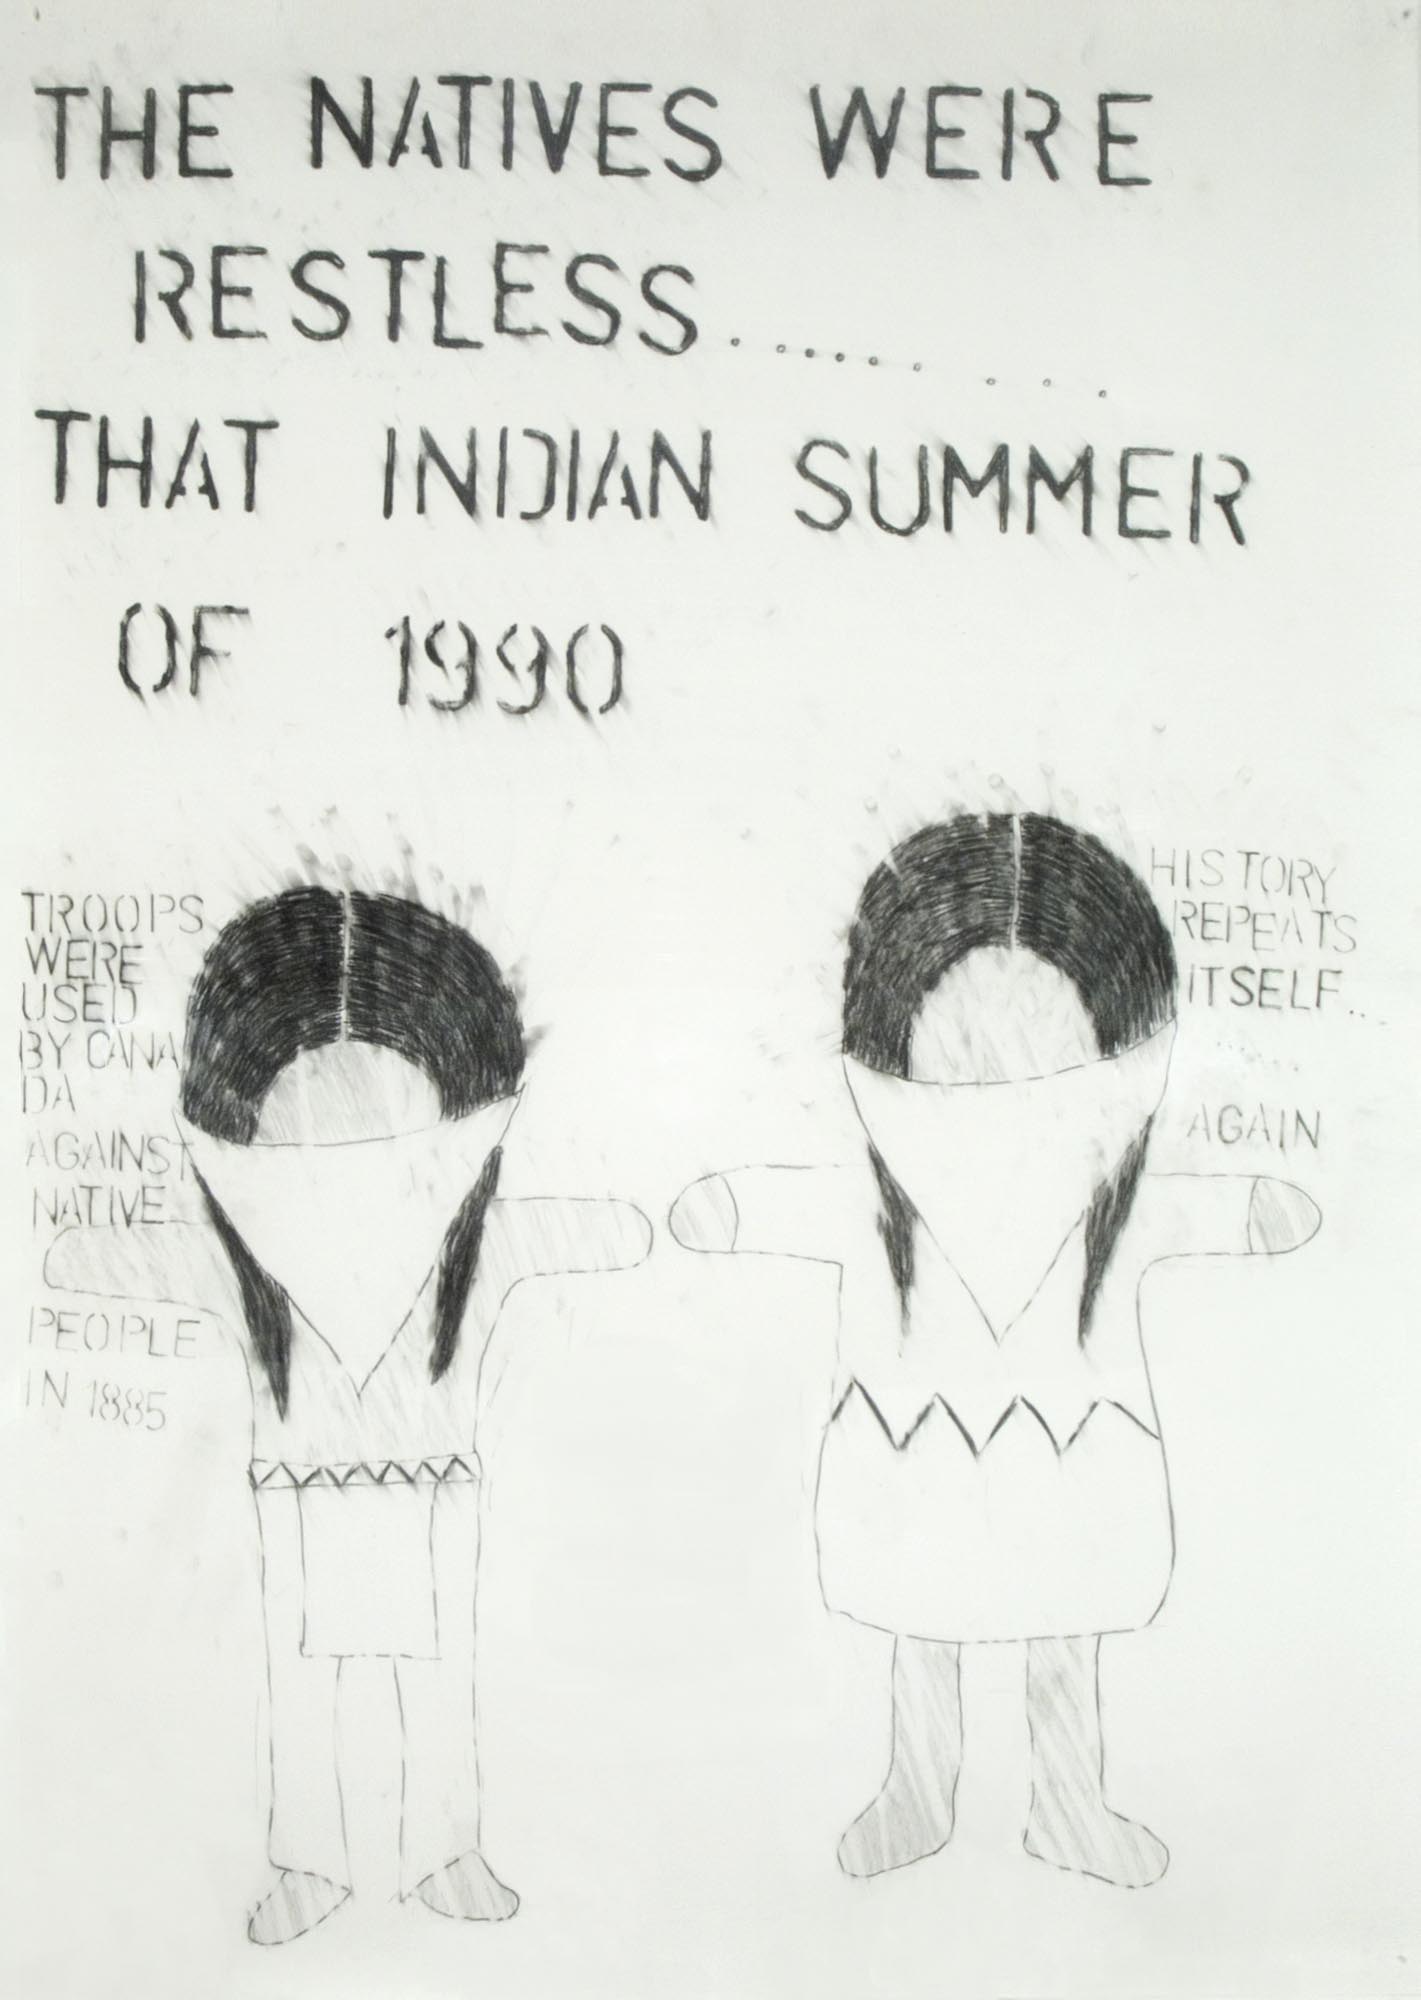 THE NATIVES WERE
RESTLESS.........
THAT INDIAN SUMMER
OF 1990
TROOPS
WERE
USED
BY CANA
DA
AGAINST
NATIVE
PEOPLE
IN 1885
HISTORY
REPEATS
ITSELF...
.......
AGAIN